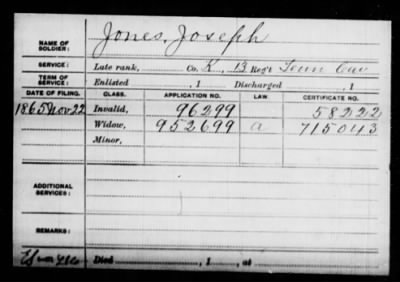 NAME OF SOLDIER: Jones, Joseph
SERVICE: Late rank, Co. K, 13 Reg't Tenn Cav
TERM OF SERVICE: Enlisted , 1 Discharged , 1
DATE OF FILING. CLASS. APPLICATION NO. LAW. CERTIFICATE NO.
1865 Nov 22 Invalid, 96299 58222
Widow, 952699 a 715043
Minor,
ADDITIONAL SERVICES:
REMARKS:
Died , 1 , at